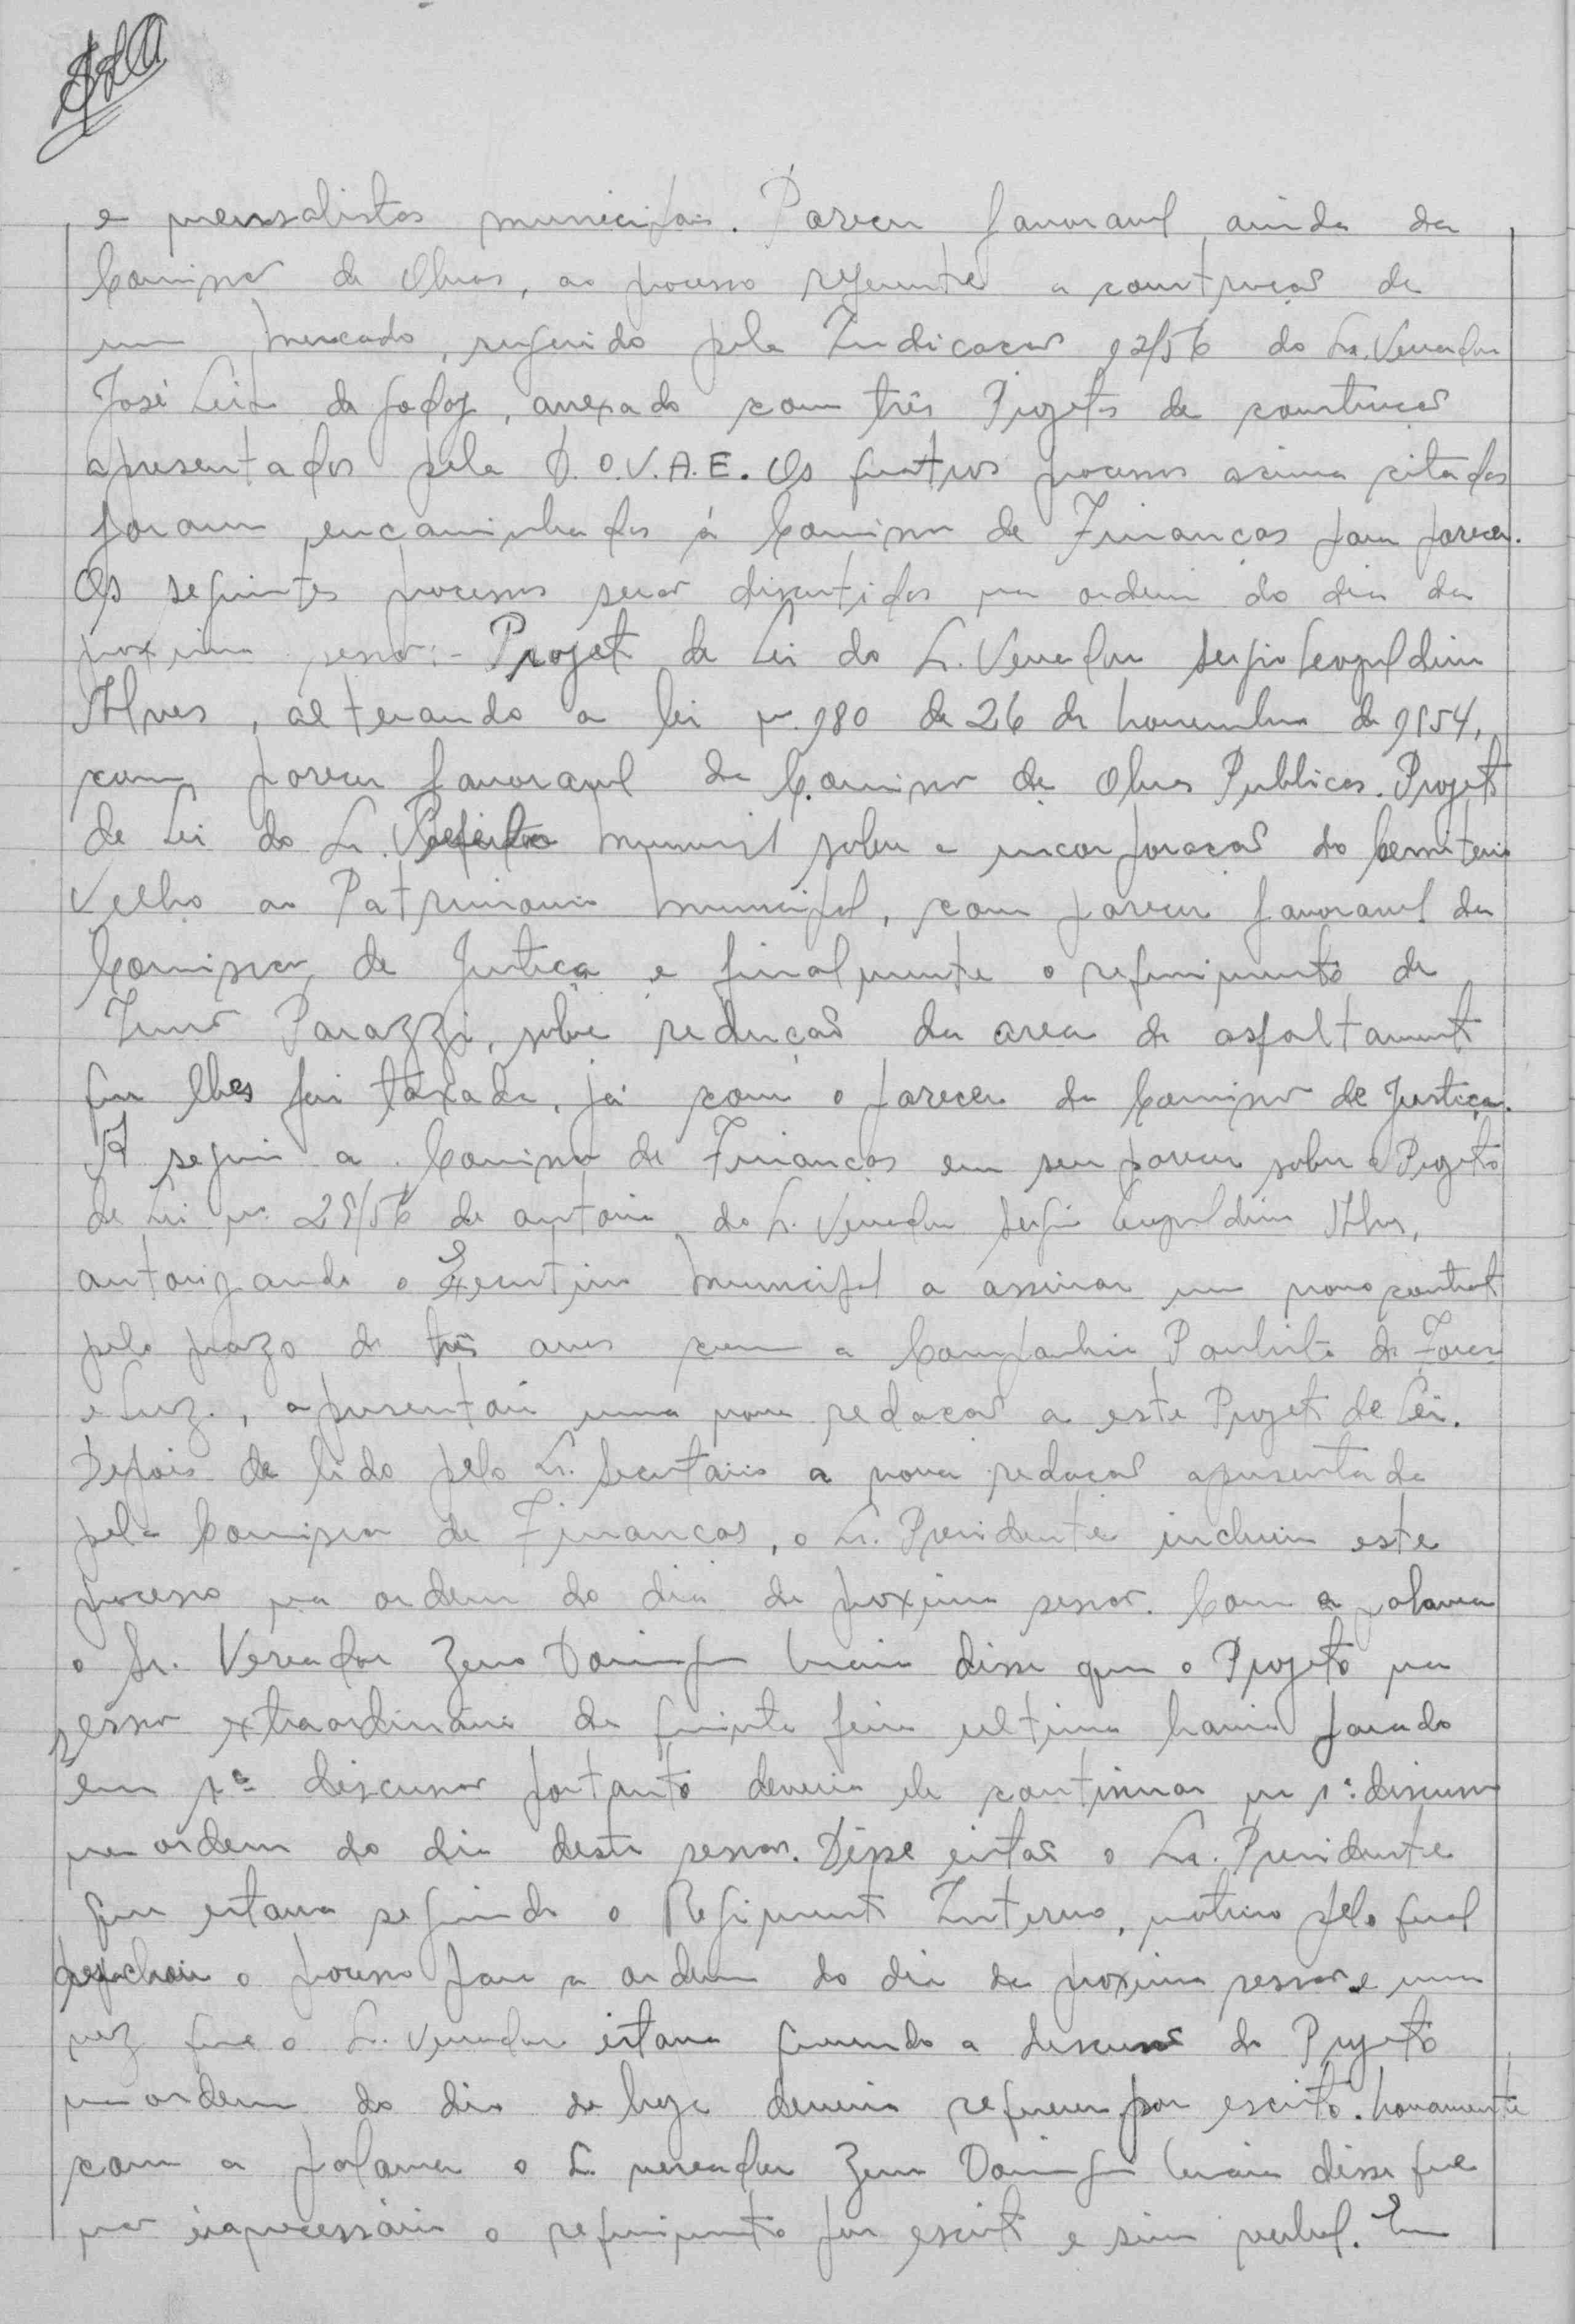 e mensalistas municipais. Parecer favoravel ainda da
Comissão de Obras, ao processo referente a construção de
um mercado, sugerido pela Indicação 92/56 do Sr. Vereador
José Leite de Godoy, anexado com três Projetos de construção
apresentados pela D.O.V.A.E. Os quatros processos acima citados
foram encaminhados á Comissão de Finanças para parecer.
Os seguintes processos serão discutidos na ordem do dia da
proxima sessão:- Projeto de Lei do Sr. Vereador Sergio Leopoldino
Alves, alterando a lei nº 980 de 26 de novembro de 1954,
com parecer favoravel da Comissão de Obras Publicas. Projeto
de Lei do Sr. Prefeito Municipal sobre a incorporação do Cemiterio
Velho ao Patrimonio Municipal, com parecer favoravel da
Comissão de Justiça e finalmente o requerimento de
Parazzi, sobre redução da area de asfaltamento
que lhes foi taxada, já com o parecer da Comissão de Justiça.
A seguir a Comissão de Finanças em seu parecer sobre o Projeto
de Lei nº 28/56 de autoria do Sr. Vereador Sergio Leopoldino Alves,
autorizando o Executivo Municipal a assinar um novo contrato
pelo prazo de três anos com a Companhia Paulista de Força
e Luz., apresentou uma nova redação a este Projeto de Lei.
Depois de lido pelo Sr. Secretario a nova redação apresentada
pela Comissão de Finanças, o Sr. Presidente incluiu este
processo na ordem do dia da proxima sessão. Com a palavra
o Sr. Vereador Zeno Domingos Maia disse que o Projeto na
sessão extraordinária de quinta feira ultima havia parado
em 1ª discussão portanto deveria ele continuar na 1ª discussão
na ordem do dia desta sessão. Disse então o Sr. Presidente
que estava seguindo o Regimento Interno, motivo pelo qual
despachou o processo para a ordem do dia da proxima sessão e uma
vez que o Sr. Vereador estava querendo a discussão do Projeto
na ordem do dia de hoje deveria requerer por escrito. Novamente
com a palavra o Sr. vereador Zeno Domingos Maia disse que
não é necessário o requerimento por escrito e sim verbal. Em